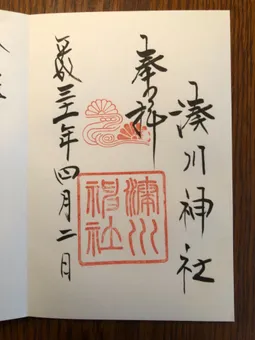 湊川神社
奉拝
平成三十一年四月二日
湊川
神社